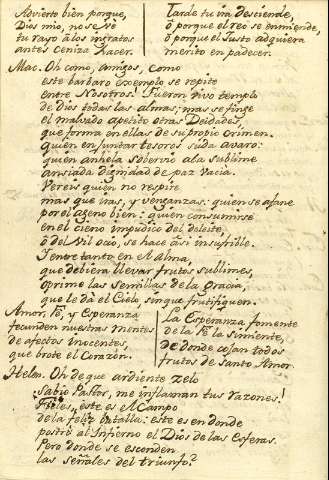 Advierto bien porque,
Dios mio, no se vè
tu rayo à los ingratos
antes Ceniza hacer.
Tarde tu ira desciende,
ò porque el reo se enmiende,
ò porque el Justo adquiera
merito en padecer.
Mac. Oh como, amigos, como
este barbaro exemplo se repite
entre Nosotros! Fueron vivo templo
de Dios todas las almas; mas se finge
el malvado apetito otras Deidades,
que forma en ellas de su propio Crimen.
quien en juntar tesoros suda avaro:
quien anhela sobervio a la sublime
ansiada dignidad de paz vacia.
Vereis quien no respire
mas que iras, y venganzas: quien se afane
por el ageno bien: quien consumirse
en el cieno impudico del deleite,
ò del vil ocio, se hace à si insufrible.
Y entre tanto en el Alma,
que debiera llevar frutos sublimes,
oprime las semillas de la gracia,
que le dà el Cielo, sin que frutifiquen.
Amor, Fè, y Esperanza
fecunden nuestras mentes
de afectos inocentes,
que brote el Corazon.
La Esperanza fomente
de la Fè la simiente,
de donde cojan todos
frutos de santo Amor.
Helen. Oh de que ardiente zelo
Sabio Pastor, me inflaman tus razones!
Fieles, este es el Campo
de la feliz batalla: este es en donde
postrò al Infierno el Dios de las Esferas.
Pero donde se esconden
las señales del triunfo?